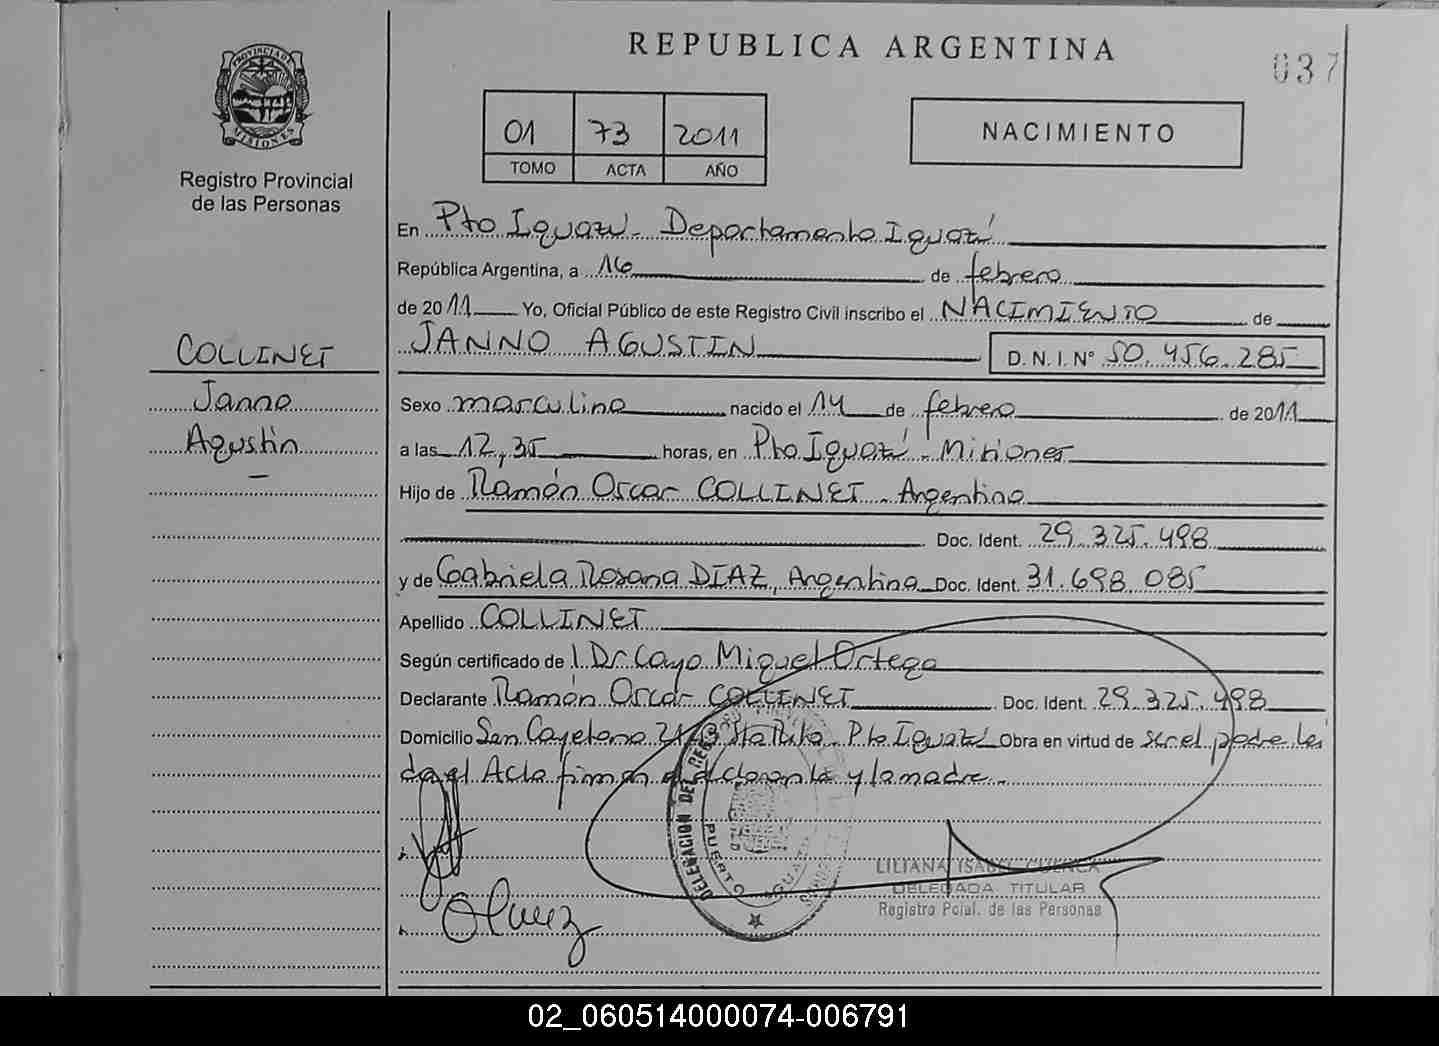 REPUBLICA ARGENTINA
037
PROVINCIA DE
MISIONES
Registro Provincial
de las Personas
01 73 2011
TOMO ACTA AÑO
NACIMIENTO
COLLINET
Janno
Agustín
En Pto Iguazú - Departamento Iguazú
República Argentina, a 16 de febrero
de 2011 Yo, Oficial Público de este Registro Civil inscribo el NACIMIENTO de
JANNO AGUSTIN D.N.I. Nº 50.456.285
Sexo masculino nacido el 14 de febrero de 2011
a las 12,35 horas, en Pto Iguazú - Misiones
Hijo de Ramón Oscar COLLINET - Argentino
Doc. Ident. 29.325.498
y de Gabriela Rosana DIAZ, Argentina Doc. Ident. 31.698.085
Apellido COLLINET
Según certificado de Dr Cayo Miguel Ortega
Declarante Ramón Oscar COLLINET Doc. Ident. 29.325.498
Domicilio San Cayetano Sta Rita - Pto Iguazú Obra en virtud de ser el padre leí
da el Acta firman el declarante y la madre -
DELEGACION DEL REG
PUERTO IGUAZU
LILIANA ISABEL CUENCA
DELEGADA TITULAR
Registro Pcial. de las Personas
02_060514000074-006791